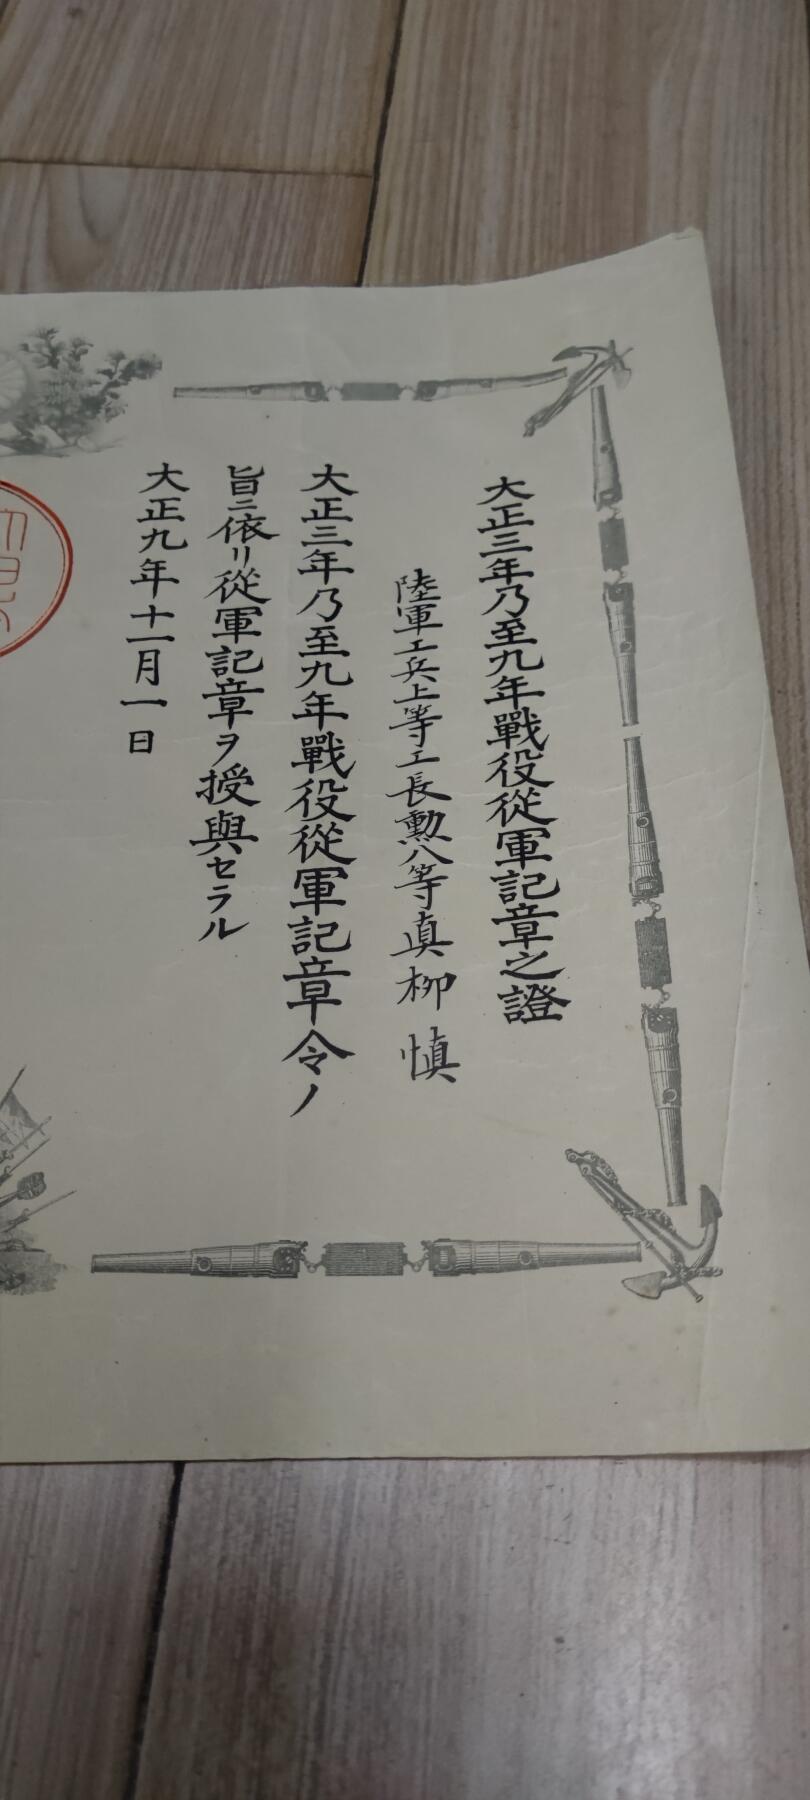 大正三年乃至九年戰役從軍記章之證
陸軍工兵上等工長勲八等真柳慎
大正三年乃至九年戰役從軍記章令ノ
旨ニ依リ從軍記章ヲ授與セラル
大正九年十一月一日